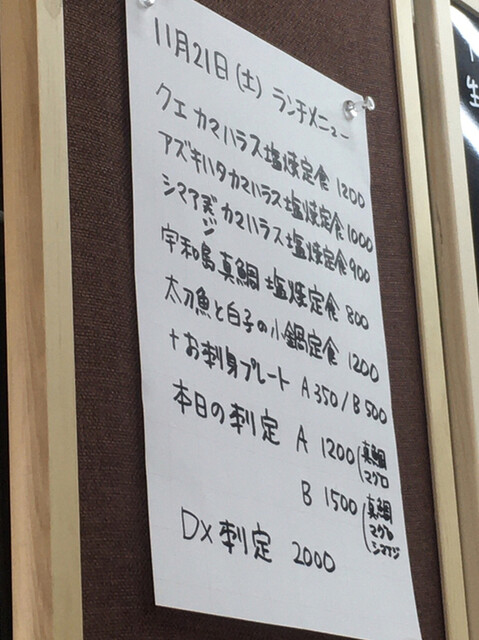 11月21日(土) ランチメニュー
クエ カマハラス塩焼定食 1200
アズキハタカマハラス塩焼定食 1000
シマアジカマハラス塩焼定食 900
宇和島真鯛 塩焼定食 800
太刀魚と白子の小鍋定食 1200
+お刺身プレート A350/B500
本日の刺定 A 1200(真鯛
マグロ
B 1500(真鯛
マグロ
シマアジ
DX刺定 2000
生